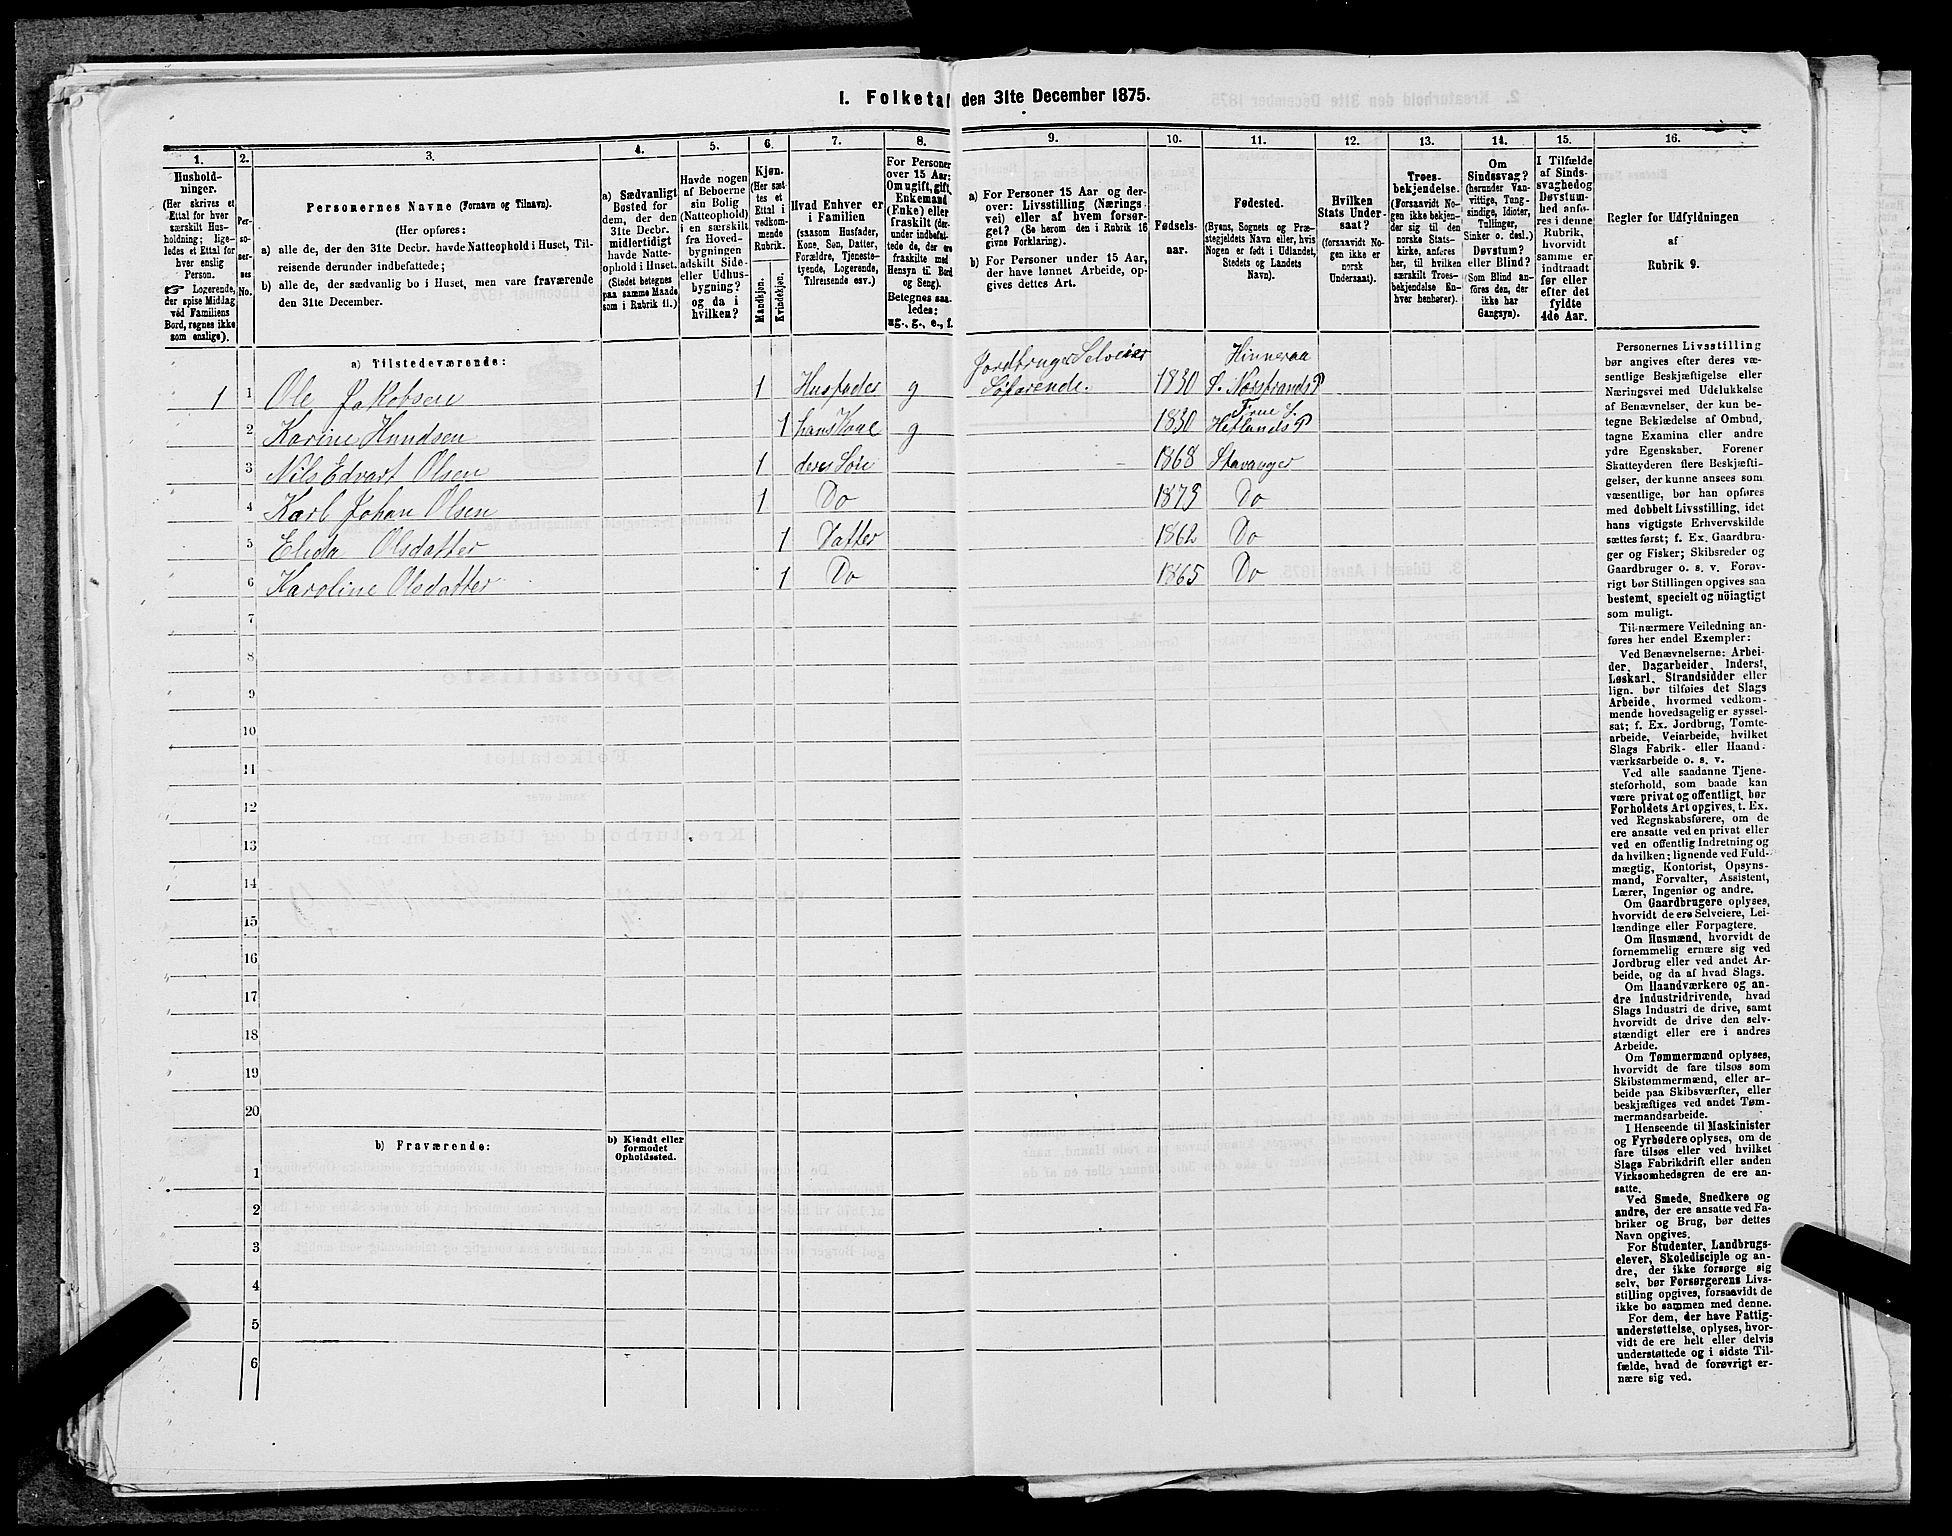 I. Folketal den 31te December 1875.
1. 2. 3. 4. 5. 6. 7. 8. 9. 10. 11. 12. 13. 14. 15. 16.
Hushold-
ninger.
(Her skrives et
Ettal for hver
særskilt Hus-
holdning; lige-
ledes et Ettal for
hver enslig
Person.
☞ Logerende,
der spise Middag
ved Familiens
Bord, regnes ikke
som enslige).
Per-
so-
ner-
nes
No.
Personernes Navne (Fornavn og Tilnavn).
(Her opføres:
a) alle de, der den 31te Decbr. havde Natteophold i Huset, Til-
reisende derunder indbefattede;
b) alle de, der sædvanlig bo i Huset, men vare fraværende
den 31te December.
a) Sædvanligt
Bosted for
dem, der den
31te Decbr.
midlertidigt
havde Natte-
ophold i Huset.
(Stedet betegnes
paa samme Maade
som i Rubrik 11.)
Havde nogen
af Beboerne
sin Bolig
(Natteophold)
i en særskilt
fra Hoved-
bygningen
adskilt Side-
eller Udhus-
bygning?
og da i
hvilken?
Kjøn.
(Her sæt-
tes et
Ettal i
vedkom-
mende
Rubrik.
Mandkjøn.
Kvindekjøn.
Hvad Enhver er
i Familien
(saasom Husfader,
Kone, Søn, Datter,
Forældre, Tjeneste-
tyende, Logerende,
Tilreisende osv.)
For Personer
over 15 Aar:
Om ugift, gift,
Enkemand
(Enke) eller
fraskilt (der-
under indbefat-
tede de, der ere
fraskilte med
Hensyn til Bord
og Seng).
Betegnes saa-
ledes:
ug., g., e., f.
a) For Personer 15 Aar og der-
over: Livsstilling (Nærings-
vei) eller af hvem forsør-
get? (Se herom den i Rubrik 16
givne Forklaring).
b) For Personer under 15 Aar,
der have lønnet Arbeide, op-
gives dettes Art.
Fødsels-
aar.
Fødested.
(Byens, Sognets og Præ-
stegjeldets Navn eller, hvis
Nogen er født i Udlandet,
Stedets og Landets
Navn).
Hvilken
Stats Under-
saat?
(forsaavidt No-
gen ikke er
norsk
Undersaat).
Troes-
bekjendelse.
(Forsaavidt No-
gen ikke bekjen-
der sig til den
norske Stats-
kirke, anføres
her, til hvilken
særskilt Troes-
bekjendelse En-
hver henhører).
Om
Sindssvag?
(herunder Van-
vittige, Tung-
sindige, Idioter,
Tullinger,
Sinker o. desl.)
Døvstum?
eller Blind?
(Som Blind an-
føres den, der
ikke har
Gangsyn).
I Tilfælde
af Sinds-
svaghed og
Døvstum-
hed anfø-
res i denne
Rubrik,
hvorvidt
samme er
indtraadt
før eller
efter det
fyldte
4de Aar.
Regler for Udfyldningen
af
Rubrik 9.
a) Tilstedeværende:
1 1 Ole Jakobsen 1 Husfader g Jordbruger Selveier Søfarende. 1830 Hinneraa S. Norstrands P
2 Karine Hundsen 1 hans Kone g 1830 Hetlands P
3 Nils Edvart Olsen 1 deres Søn 1868 Stavanger
4 Karl Johan Olsen 1 Do 1873 Do
5 Elida Olsdatter 1 Datter 1862 Do
6 Karoline Olsdatter 1 Do 1865 Do
7
8
9
10
11
12
13
14
15
16
17
18
19
20
b) Fraværende:
b) Kjendt eller
formodet
Opholdssted.
1
2
3
4
5
6
Personernes Livsstilling
bør angives efter deres væ-
sentlige Beskjæftigelse eller
Næringsvei med Udelukkelse
af Benævnelser, der kun be-
tegne Beklædelse af Ombud,
tagne Examina eller andre
ydre Egenskaber. Forener
Skatteyderen flere Beskjæfti-
gelser, der kunne ansees som
væsentlige, bør han opføres
med dobbelt Livsstilling, idet
hans vigtigste Erhvervskilde
sættes først; f. Ex. Gaardbru-
ger og Fisker; Skibsreder og
Gaardbruger o. s. v. Forøv-
rigt bør Stillingen opgives saa
bestemt, specielt og nøiagtigt
som muligt.
Til nærmere Veiledning an-
føres her endel Exempler:
Ved Benævnelserne: Arbei-
der, Dagarbeider, Inderst,
Løskarl, Strandsidder eller
lign. bør tilføies det Slags
Arbeide, hvormed vedkom-
mende hovedsagelig er syssel-
sat; f. Ex. Jordbrug, Tomte-
arbeide, Veiarbeide, hvilket
Slags Fabrik- eller Haand-
værksarbeide o. s. v.
Ved alle saadanne Tjene-
steforhold, som baade kan
være privat og offentligt, bør
Forholdets Art opgives, t. Ex.
ved Regnskabsførere, om de
ere ansatte ved en privat eller
ved en offentlig Indretning og
da hvilken; lignende ved Fuld-
mægtig, Kontorist, Opsyns-
mand, Forvalter, Assistent,
Lærer, Ingeniør og andre.
Om Gaardbrugere oplyses,
hvorvidt de ere Selveiere, Lei-
lændinge eller Forpagtere.
Om Husmænd, hvorvidt de
fornemmelig ernære sig ved
Jordbrug eller ved andet Ar-
beide, og da af hvad Slags.
Om Haandværkere og an-
dre Industridrivende, hvad
Slags Industri de drive, samt
hvorvidt de drive den selv-
stændigt eller ere i andres
Arbeide.
Om Tømmermænd oplyses,
hvorvidt de fare tilsøs som
Skibstømmermænd, eller ar-
beide paa Skibsværfter, eller
beskjæftiges ved andet Tøm-
mermandsarbeide.
I Henseende til Maskinister
og Fyrbødere oplyses, om de
fare tilsøs eller ved hvilket
Slags Fabrikdrift eller anden
Virksomhedsgren de ere an-
satte.
Ved Smede, Snedkere og
andre, der ere ansatte ved Fa-
briker og Brug, bør dettes
Navn opgives.
For Studenter, Landbrugs-
elever, Skoledisciple og an-
dre, der ikke forsørge sig
selv, bør Forsørgerens Livs-
stilling opgives, forsaavidt de
ikke bo sammen med denne.
For dem, der have Fattig-
understøttelse, oplyses, hvor-
vidt de ere helt eller delvis
understøttede og i sidste Til-
fælde, hvad de forøvrigt er-
nære sig ved.